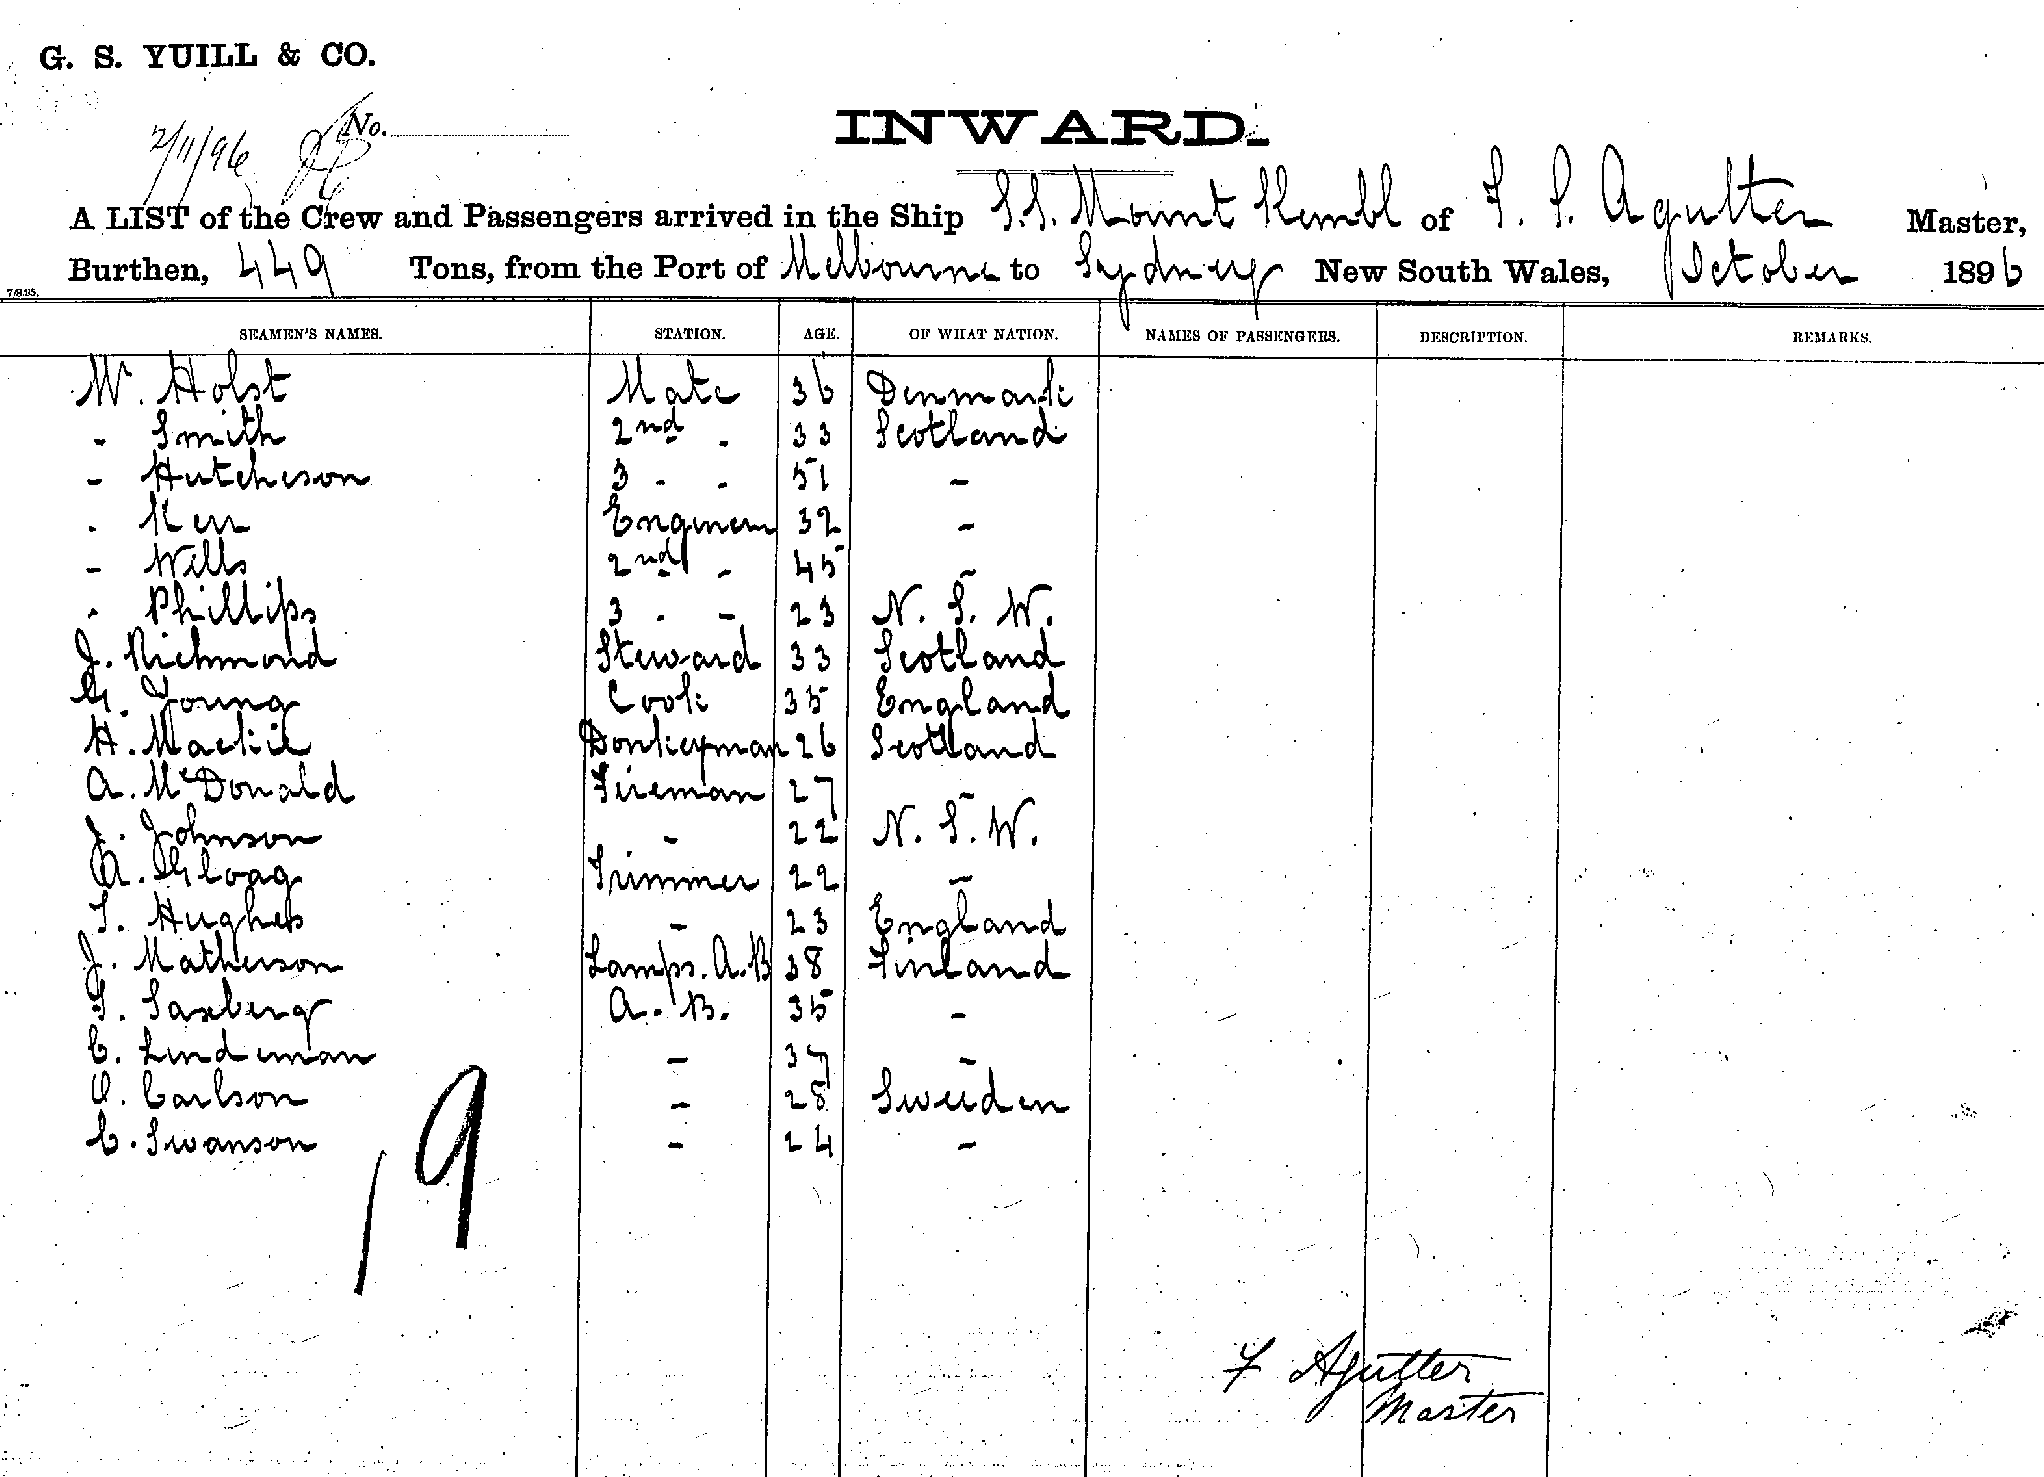 G. S. YUILL & CO.
2/11/96 No.
INWARD.
A LIST of the Crew and Passengers arrived in the Ship S.S. Mount Kembl of F. S. Agutter Master,
Burthen, 449 Tons, from the Port of Melbourne to Sydney New South Wales, October 1896
7/8/95.
SEAMEN'S NAMES. STATION. AGE. OF WHAT NATION. NAMES OF PASSENGERS. DESCRIPTION. REMARKS.
Mr. Holst Mate 36 Denmark
- Smith 2nd - 33 Scotland
- Hutcheson 3 - - 51 -
- Kerr Engineer 32 -
- Wills 2nd - 45 -
- Phillips 3 - - 23 N. S. W.
J. Richmond Steward 33 Scotland
G. Young Cook 35 England
H. Mackie Donkeyman 26 Scotland
A. McDonald Fireman 27 -
J. Johnson - 22 N. S. W.
A. Gloag Trimmer 22 -
T. Hughes - 23 England
J. Matherson Lamps. A.B 38 Finland
T. Saxberg A. B. 35 -
C. Lindeman - 37 -
O. Carlson - 28 Sweeden
C. Swanson - 24 -
19
F Agutter
Master